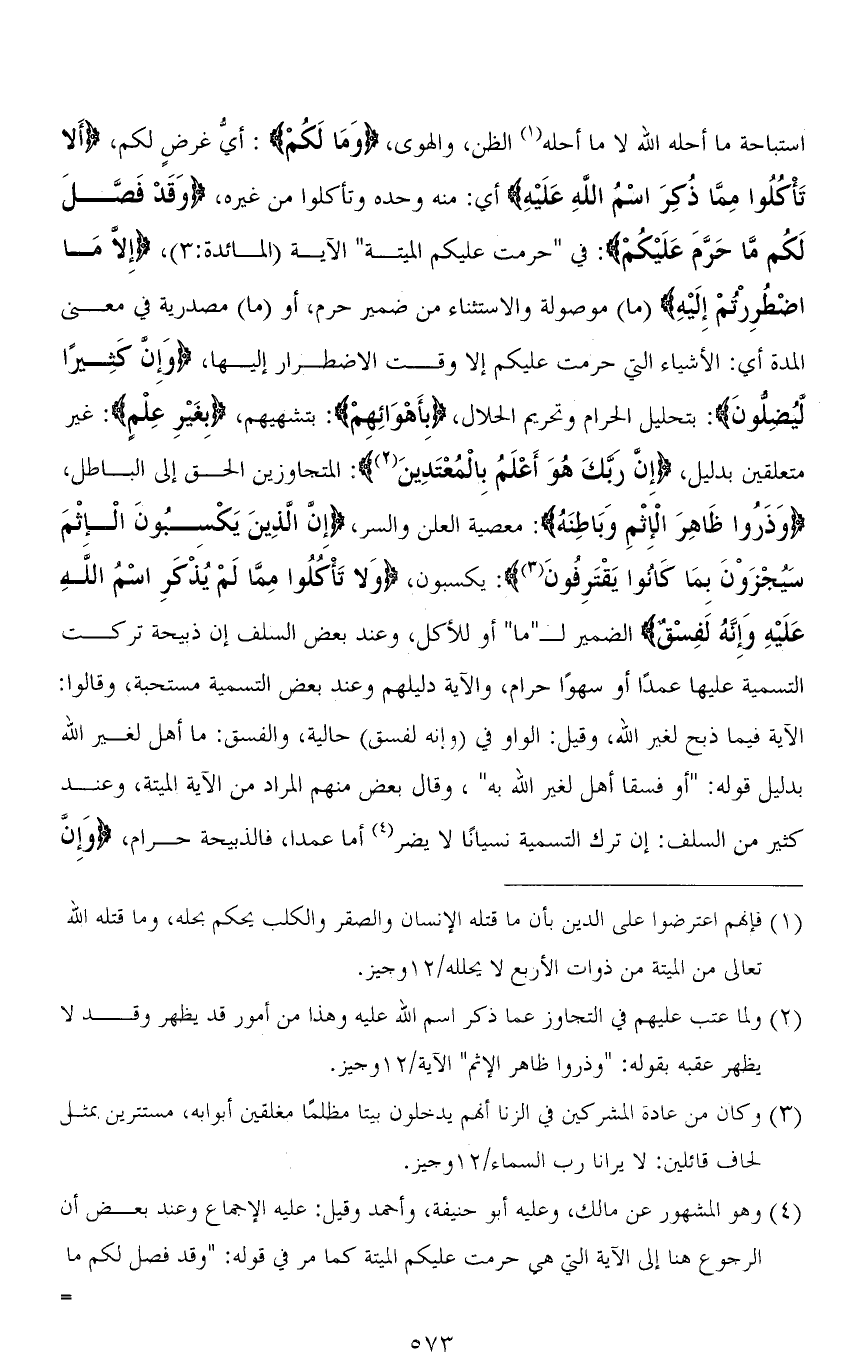 استباحة ما أحله الله لا ما أحله(١) الظن، والهوى، ﴿وَمَا لَكُمْ﴾ : أيُّ غرضٍ لكم، ﴿أَلا
تَأْكُلُوا مِمَّا ذُكِرَ اسْمُ اللَّهِ عَلَيْهِ﴾ أي: منه وحده وتأكلوا من غيره، ﴿وَقَدْ فَصَّـــلَ
لَكُم مَّا حَرَّمَ عَلَيْكُمْ﴾: في "حرمت عليكم الميتـــة" الآيـــة (المـــائدة:٣)، ﴿إِلاَّ مَـــا
اضْطُرِرْتُمْ إِلَيْهِ﴾ (ما) موصولة والاستثناء من ضمير حرم، أو (ما) مصدرية في معـــنى
المدة أي: الأشياء التي حرمت عليكم إلا وقـــت الاضطـــرار إليـــها، ﴿وَإِنَّ كَثِـــيرًا
لَّيُضِلُّونَ﴾: بتحليل الحرام وتحريم الحلال، ﴿بِأَهْوَائِهِمْ﴾: بتشهيهم، ﴿بِغَيْرِ عِلْمٍ﴾: غير
متعلقين بدليل، ﴿إِنَّ رَبَّكَ هُوَ أَعْلَمُ بِالْمُعْتَدِينَ(٢)﴾: المتجاوزين الحـــق إلى البـــاطل،
﴿وَذَرُوا ظَاهِرَ الْإِثْمِ وَبَاطِنَهُ﴾: معصية العلن والسر، ﴿إِنَّ الَّذِينَ يَكْسِـــبُونَ الْـــإِثْمَ
سَيُجْزَوْنَ بِمَا كَانُوا يَقْتَرِفُونَ(٣)﴾: يكسبون، ﴿وَلا تَأْكُلُوا مِمَّا لَمْ يُذْكَرِ اسْمُ اللَّـــهِ
عَلَيْهِ وَإِنَّهُ لَفِسْقٌ﴾ الضمير لـــ"ما" أو للأكل، وعند بعض السلف إن ذبيحة تركـــت
التسمية عليها عمدًا أو سهوًا حرام، والآية دليلهم وعند بعض التسمية مستحبة، وقالوا:
الآية فيما ذبح لغير الله، وقيل: الواو في (وإنه لفسق) حالية، والفسق: ما أهل لغـــير الله
بدليل قوله: "أو فسقا أهل لغير الله به" ، وقال بعض منهم المراد من الآية الميتة، وعنـــد
كثير من السلف: إن ترك التسمية نسيانًا لا يضر(٤) أما عمدا، فالذبيحة حـــرام، ﴿وَإِنَّ
(١) فإنهم اعترضوا على الدين بأن ما قتله الإنسان والصقر والكلب يحكم بحله، وما قتله الله
تعالى من الميتة من ذوات الأربع لا يحلله/١٢وجيز.
(٢) ولما عتب عليهم في التجاوز عما ذكر اسم الله عليه وهذا من أمور قد يظهر وقـــد لا
يظهر عقبه بقوله: "وذروا ظاهر الإثم" الآية/١٢وجيز.
(٣) وكان من عادة المشركين في الزنا أنهم يدخلون بيتا مظلمًا مغلقين أبوابه، مستترين بمثـــل
لحاف قائلين: لا يرانا رب السماء/١٢وجيز.
(٤) وهو المشهور عن مالك، وعليه أبو حنيفة، وأحمد وقيل: عليه الإجماع وعند بعـــض أن
الرجوع هنا إلى الآية التي هي حرمت عليكم الميتة كما مر في قوله: "وقد فصل لكم ما
=
٥٧٣